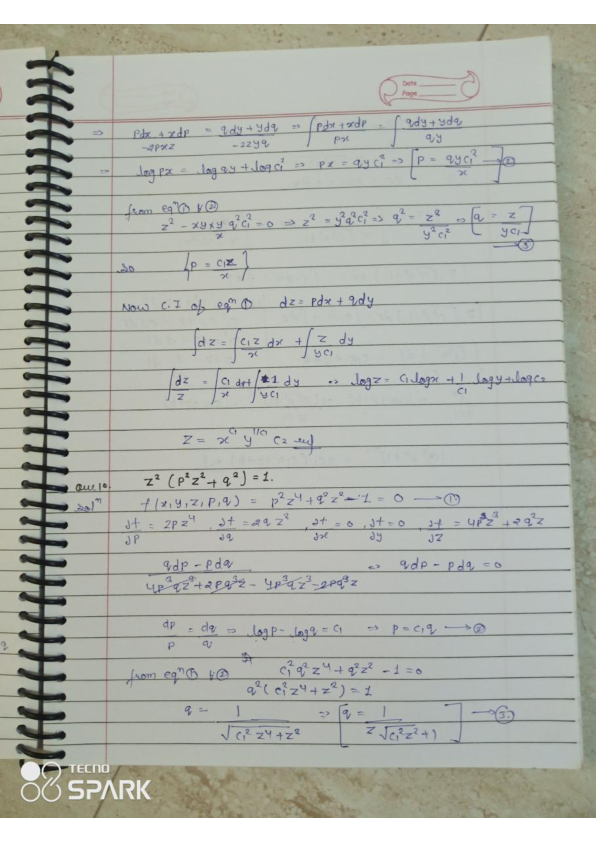 Date
Page
⇒ pdx + xdp / -2pxz = qdy + ydq / -2zyq ⇒ ∫ pdx + xdp / px = ∫ qdy + ydq / qy
→ log px = log qy + log c₁² ⇒ px = qyc₁² ⇒ [p = qyc₁² / x] —②
from eqⁿ ① & ②
z² - xy × y/x q²c₁² = 0 ⇒ z² = y²q²c₁² ⇒ q² = z² / y²c₁² ⇒ [q = z / yc₁] —③
so {p = c₁z / x}
Now C.I of eqⁿ ① dz = pdx + qdy
∫dz = ∫ c₁z / x dx + ∫ z / yc₁ dy
∫ dz / z = ∫ c₁ / x dx + ∫ 1 / yc₁ dy ⇒ log z = c₁ log x + 1/c₁ log y + log c₂
z = x^c₁ y^1/c₁ c₂
Que 10. z² (p²z² + q²) = 1.
Solⁿ f(x, y, z, p, q) = p²z⁴ + q²z² - 1 = 0 —①
∂f/∂p = 2pz⁴, ∂f/∂q = 2qz², ∂f/∂x = 0, ∂f/∂y = 0, ∂f/∂z = 4p²z³ + 2q²z
qdp - pdq / 4p³qz³ + 2pq³z - 4p³qz³ - 2pq³z ⇒ qdp - pdq = 0
dp/p = dq/q ⇒ log p - log q = c₁ ⇒ p = c₁q —②
from eqⁿ ① & ② c₁²q²z⁴ + q²z² - 1 = 0
q²(c₁²z⁴ + z²) = 1
q = 1 / √c₁²z⁴ + z² ⇒ [q = 1 / z√c₁²z² + 1] —③
TECNO
SPARK